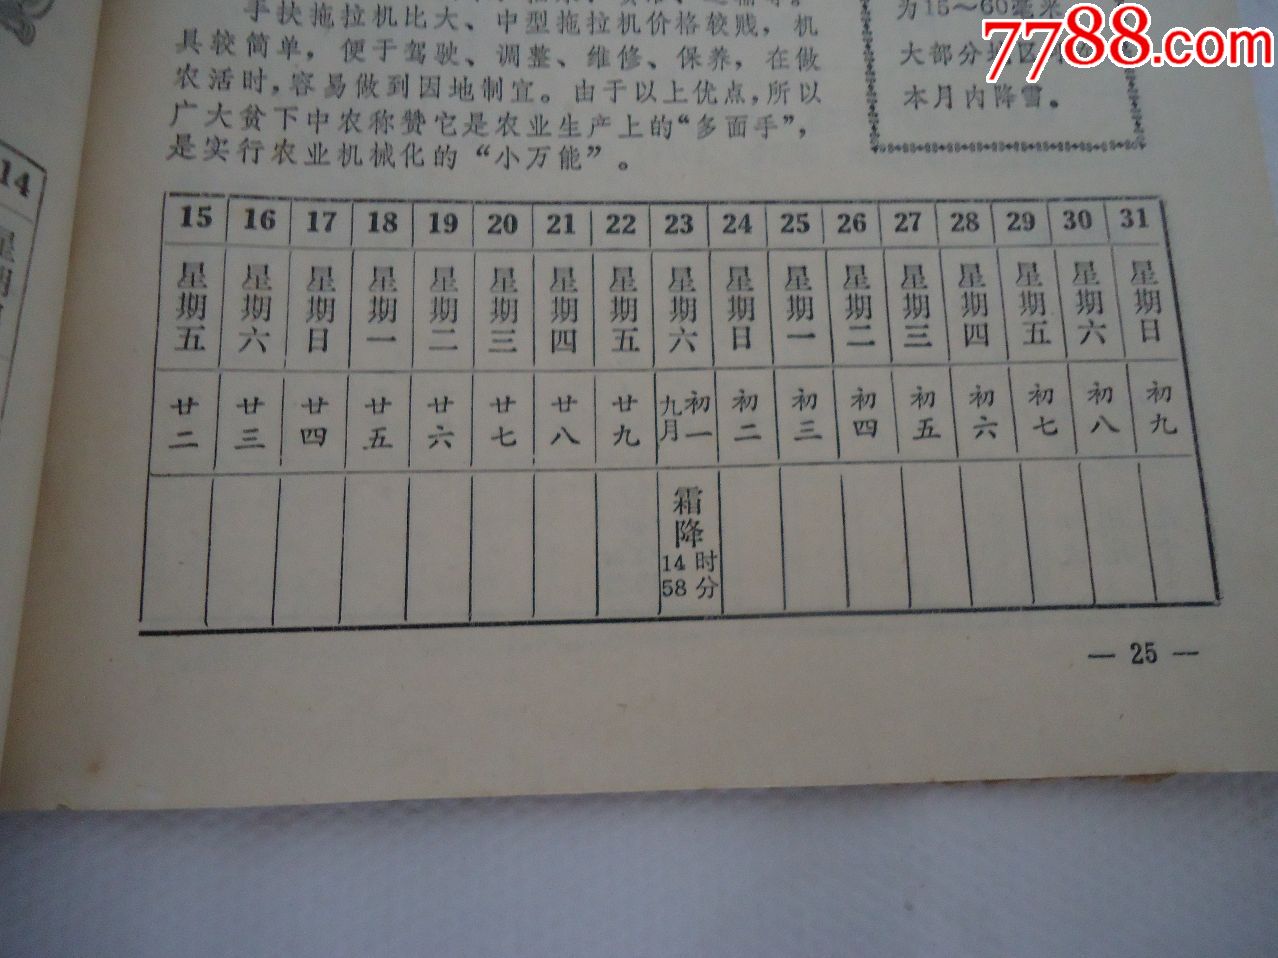 手扶拖拉机比大、中型拖拉机价格较贱，机
具较简单，便于驾驶、调整、维修、保养，在做
农活时，容易做到因地制宜。由于以上优点，所以
广大贫下中农称赞它是农业生产上的“多面手”，
是实行农业机械化的“小万能”。
为15～60毫米
大部分地区
本月内降雪。
7788.com
14
15 16 17 18 19 20 21 22 23 24 25 26 27 28 29 30 31
星期五 星期六 星期日 星期一 星期二 星期三 星期四 星期五 星期六 星期日 星期一 星期二 星期三 星期四 星期五 星期六 星期日
廿二 廿三 廿四 廿五 廿六 廿七 廿八 廿九 九月初一 初二 初三 初四 初五 初六 初七 初八 初九
霜降
14时
58分
— 25 —